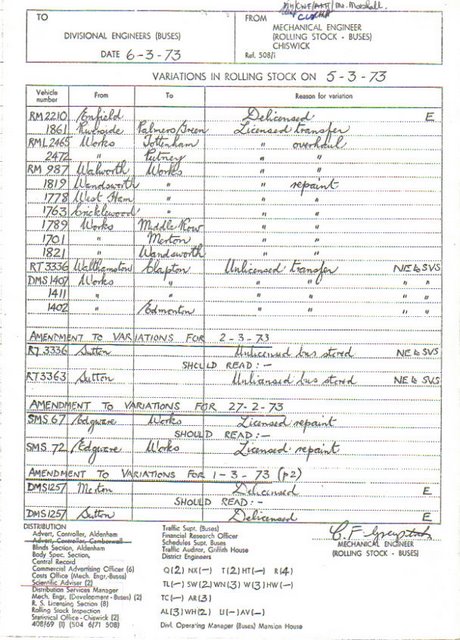 TO
DIVISIONAL ENGINEERS (BUSES)
DATE 6-3-73
FROM
MECHANICAL ENGINEER
(ROLLING STOCK - BUSES)
CHISWICK
Ref. 508/1
VARIATIONS IN ROLLING STOCK ON 5-3-73
Vehicle number From To Reason for variation
RM 2210 Enfield Delicensed E
1861 Riverside Palmers Green Licensed transfer
RML 2465 Works Tottenham " overhaul
2472 " Putney " "
RM 987 Walworth Works " "
1819 Wandsworth " " repaint
1778 West Ham " " "
1763 Cricklewood " " "
1789 Works Middle Row " "
1701 " Merton " "
1821 " Wandsworth " "
RT 3336 Walthamstow Clapton Unlicensed transfer NE to SVS
DMS 1407 Works " " " " "
1411 " " " "
1402 " Edmonton " " " "
AMENDMENT TO VARIATIONS FOR 2-3-73
RT 3336 Sutton Unlicensed bus stored NE to SVS
SHOULD READ :-
RT 3363 Sutton Unlicensed bus stored NE to SVS
AMENDMENT TO VARIATIONS FOR 27-2-73
SMS 67 Edgware Works Licensed repaint
SHOULD READ :-
SMS 72 Edgware Works Licensed repaint
AMENDMENT TO VARIATIONS FOR 1-3-73 (p2)
DMS 1257 Merton Delicensed E
SHOULD READ :-
DMS 1257 Sutton Delicensed E
DISTRIBUTION
Advert. Controller, Aldenham
Advert. Controller, Camberwell
Blinds Section, Aldenham
Body Spec. Section,
Central Record
Commercial Advertising Officer (6)
Costs Office (Mech. Engr.-Buses)
Scientific Adviser (2)
Distribution Services Manager
Mech. Engr. (Development - Buses) (2)
R. S. Licensing Section (8)
Rolling Stock Inspection
Statistical Office - Chiswick (2)
408/69 (1) (504 6/71 508)
Traffic Supt. (Buses)
Financial Research Officer
Schedules Supt. Buses
Traffic Auditor, Griffith House
District Engineers
Q(2) NX(-) T(2) HT(-) R(4)
TL(-) SW(2) WN(3) W(3) HW(-)
TC(-) AR(3)
AL(3) WH(2) LI(-) AV(-)
Divl. Operating Manager (Buses) Mansion House
MECHANICAL ENGINEER
(ROLLING STOCK - BUSES)